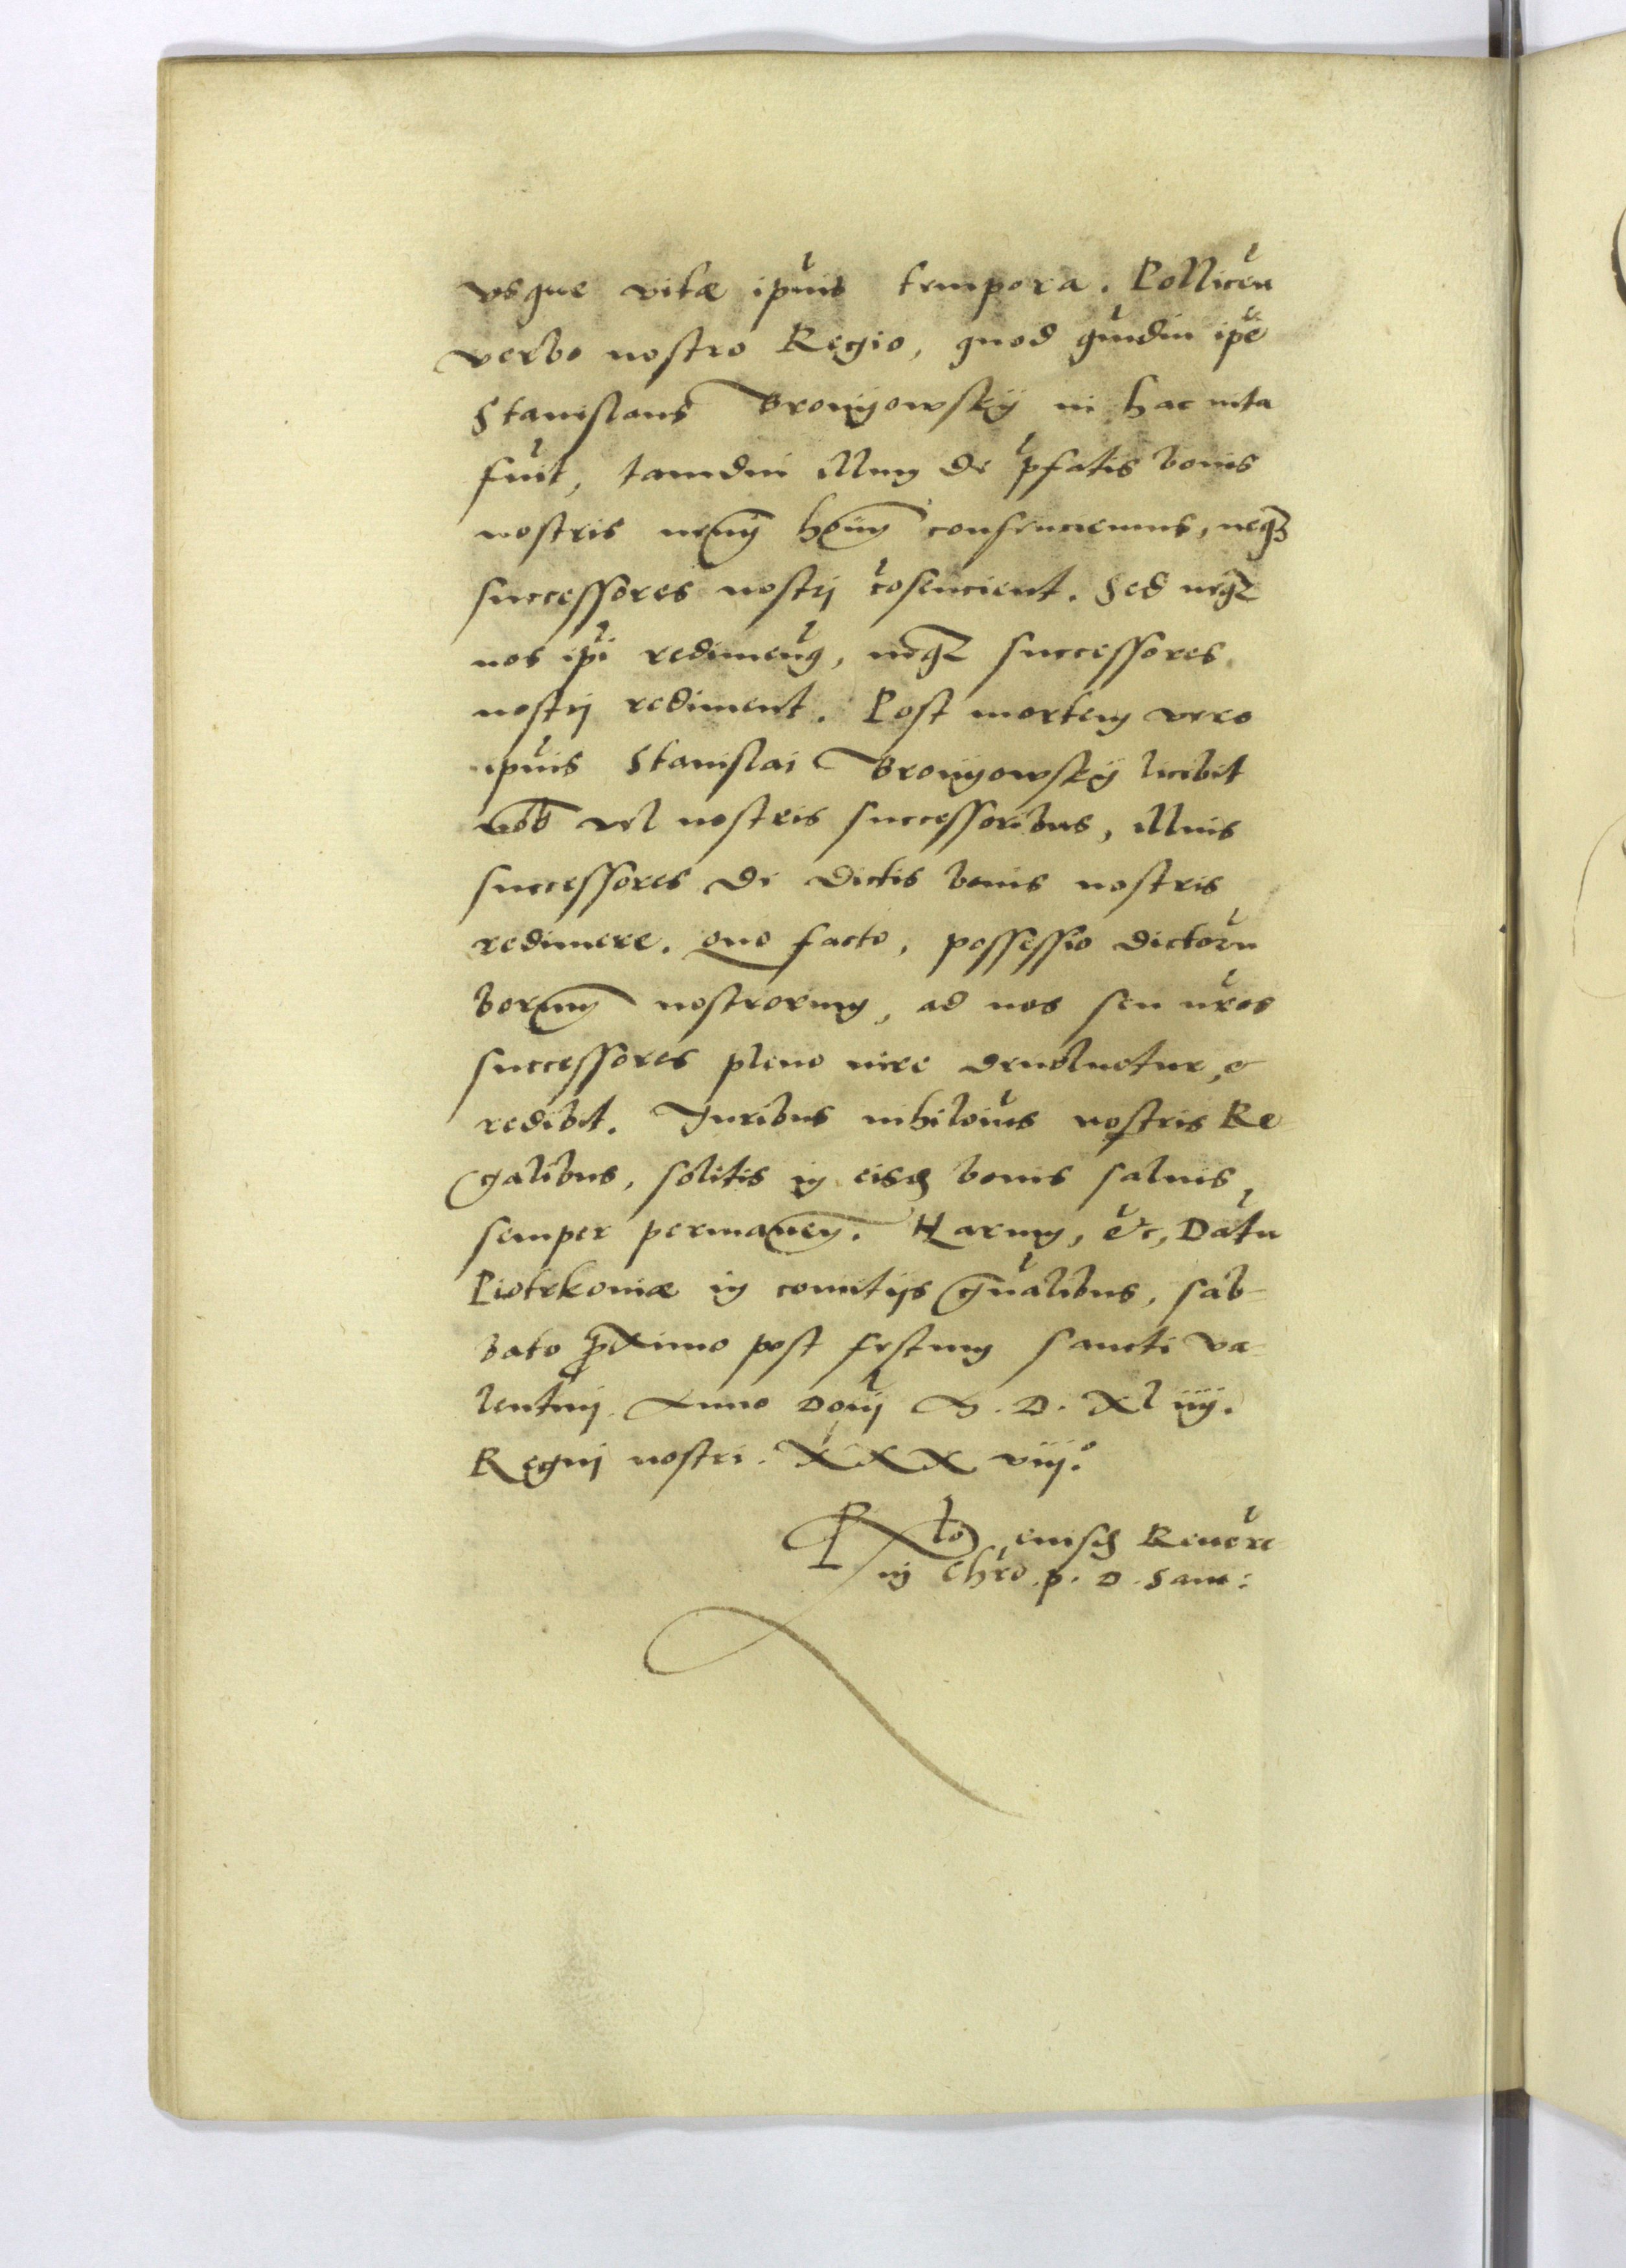 vsque vitæ ip̃ius tempora. Pollicẽn
verbo nostro Regio, quod quãdiu ip̃e
Stanislaus Bronyowskÿ in hac uita
fũit, tamdiu illum de p̃fatis bonis
nostris nemỹ hoĩm consenciemus, neq3
successores nostrj cõsencient. Sed neq3
nos ip̃i redimem9, neq3 successores
nostrj rediment. Post mortem vero
ip̃ius Stanislai Bronyowskÿ licebit
nob̃ vel nostris successoribus, illius
successores de dictis bonis nostris
redimere. quo facto, possessio dictorũ
bonorum nostrorum, ad nos seu nr̃os
successores pleno iure deuoluetur, &
redibit. Iuribus nihilom̃s nostris Re-
galibus, solitis in eisd bonis saluis
semper permanen̄. Harum, &c, Datũ
Piotrkoniæ in comitijs gñalibus, sab-
bato proximo post festum sancti Va-
lentinj. Anno Domj M. D. Xl iiij.
Regnj nostri. XXX viij.°
Rlõ eiusd Reuere
in Chr̃o. p. D. Sam: